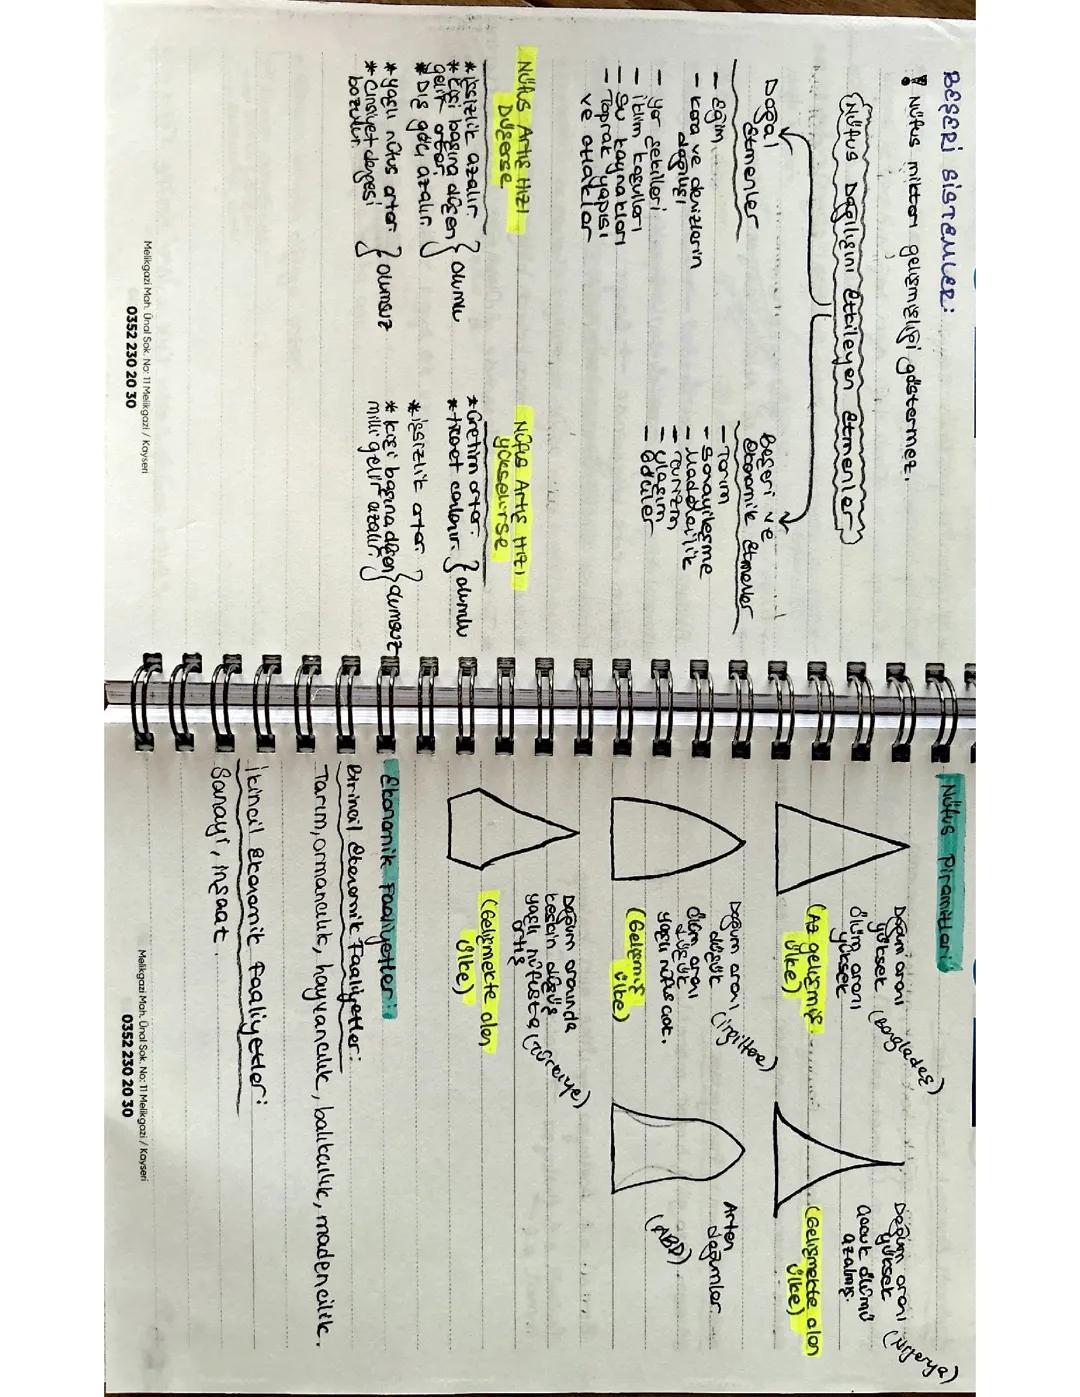 BEŞERİ SİSTEMLER:
! Nüfus miktarı gelişmişliği göstermez.
Nüfus Dağılışını Etkileyen Etmenler
Doğal
Etmenler
- eğim
- kara ve denizlerin
dağılışı
- yer şekilleri
- iklim koşulları
- su kaynakları
- toprak yapısı
ve otlaklar
Beşeri ve
Ekonomik Etmenler
- Tarım
- Sanayileşme
- Madencilik
- Turizm
- Ulaşım
- Ödüller
Nüfus Artış Hızı
Düşerse
* İşsizlik azalır
* Kişi başına düşen
gelir artar
* Dış göç azalır
olumlu
* yaşlı nüfus artar
* Cinsiyet dengesi
bozulur.
olumsuz
Nüfus Artış Hızı
yükselirse
* Üretim artar.
* ticaret canlanır.
olumlu
* işsizlik artar
* kişi başına düşen
milli gelir azalır.
olumsuz
Melikgazi Mah. Ünal Sok. No: 11 Melikgazi / Kayseri
0352 230 20 30
Nüfus Piramitleri:
Doğum oranı
yüksek
ölüm oranı
yüksek
(Bangladeş)
(Az gelişmiş
ülke)
Doğum oranı
yüksek
çocuk ölümü
azalmış.
(Nijerya)
(Gelişmekte olan
ülke)
Doğum oranı
düşük
ölüm oranı
düşük
yaşlı nüfus çok.
(İngiltere)
(Gelişmiş
ülke)
Artan
doğumlar
(ABD)
Doğum oranında
keskin düşüş
yaşlı nüfusta
artış
(Türkiye)
(Gelişmekte olan
ülke)
Ekonomik Faaliyetler:
Birincil Ekonomik Faaliyetler:
Tarım, ormancılık, hayvancılık, balıkçılık, madencilik.
İkincil Ekonomik Faaliyetler:
Sanayi, inşaat.
Melikgazi Mah. Ünal Sok. No: 11 Melikgazi / Kayseri
0352 230 20 30